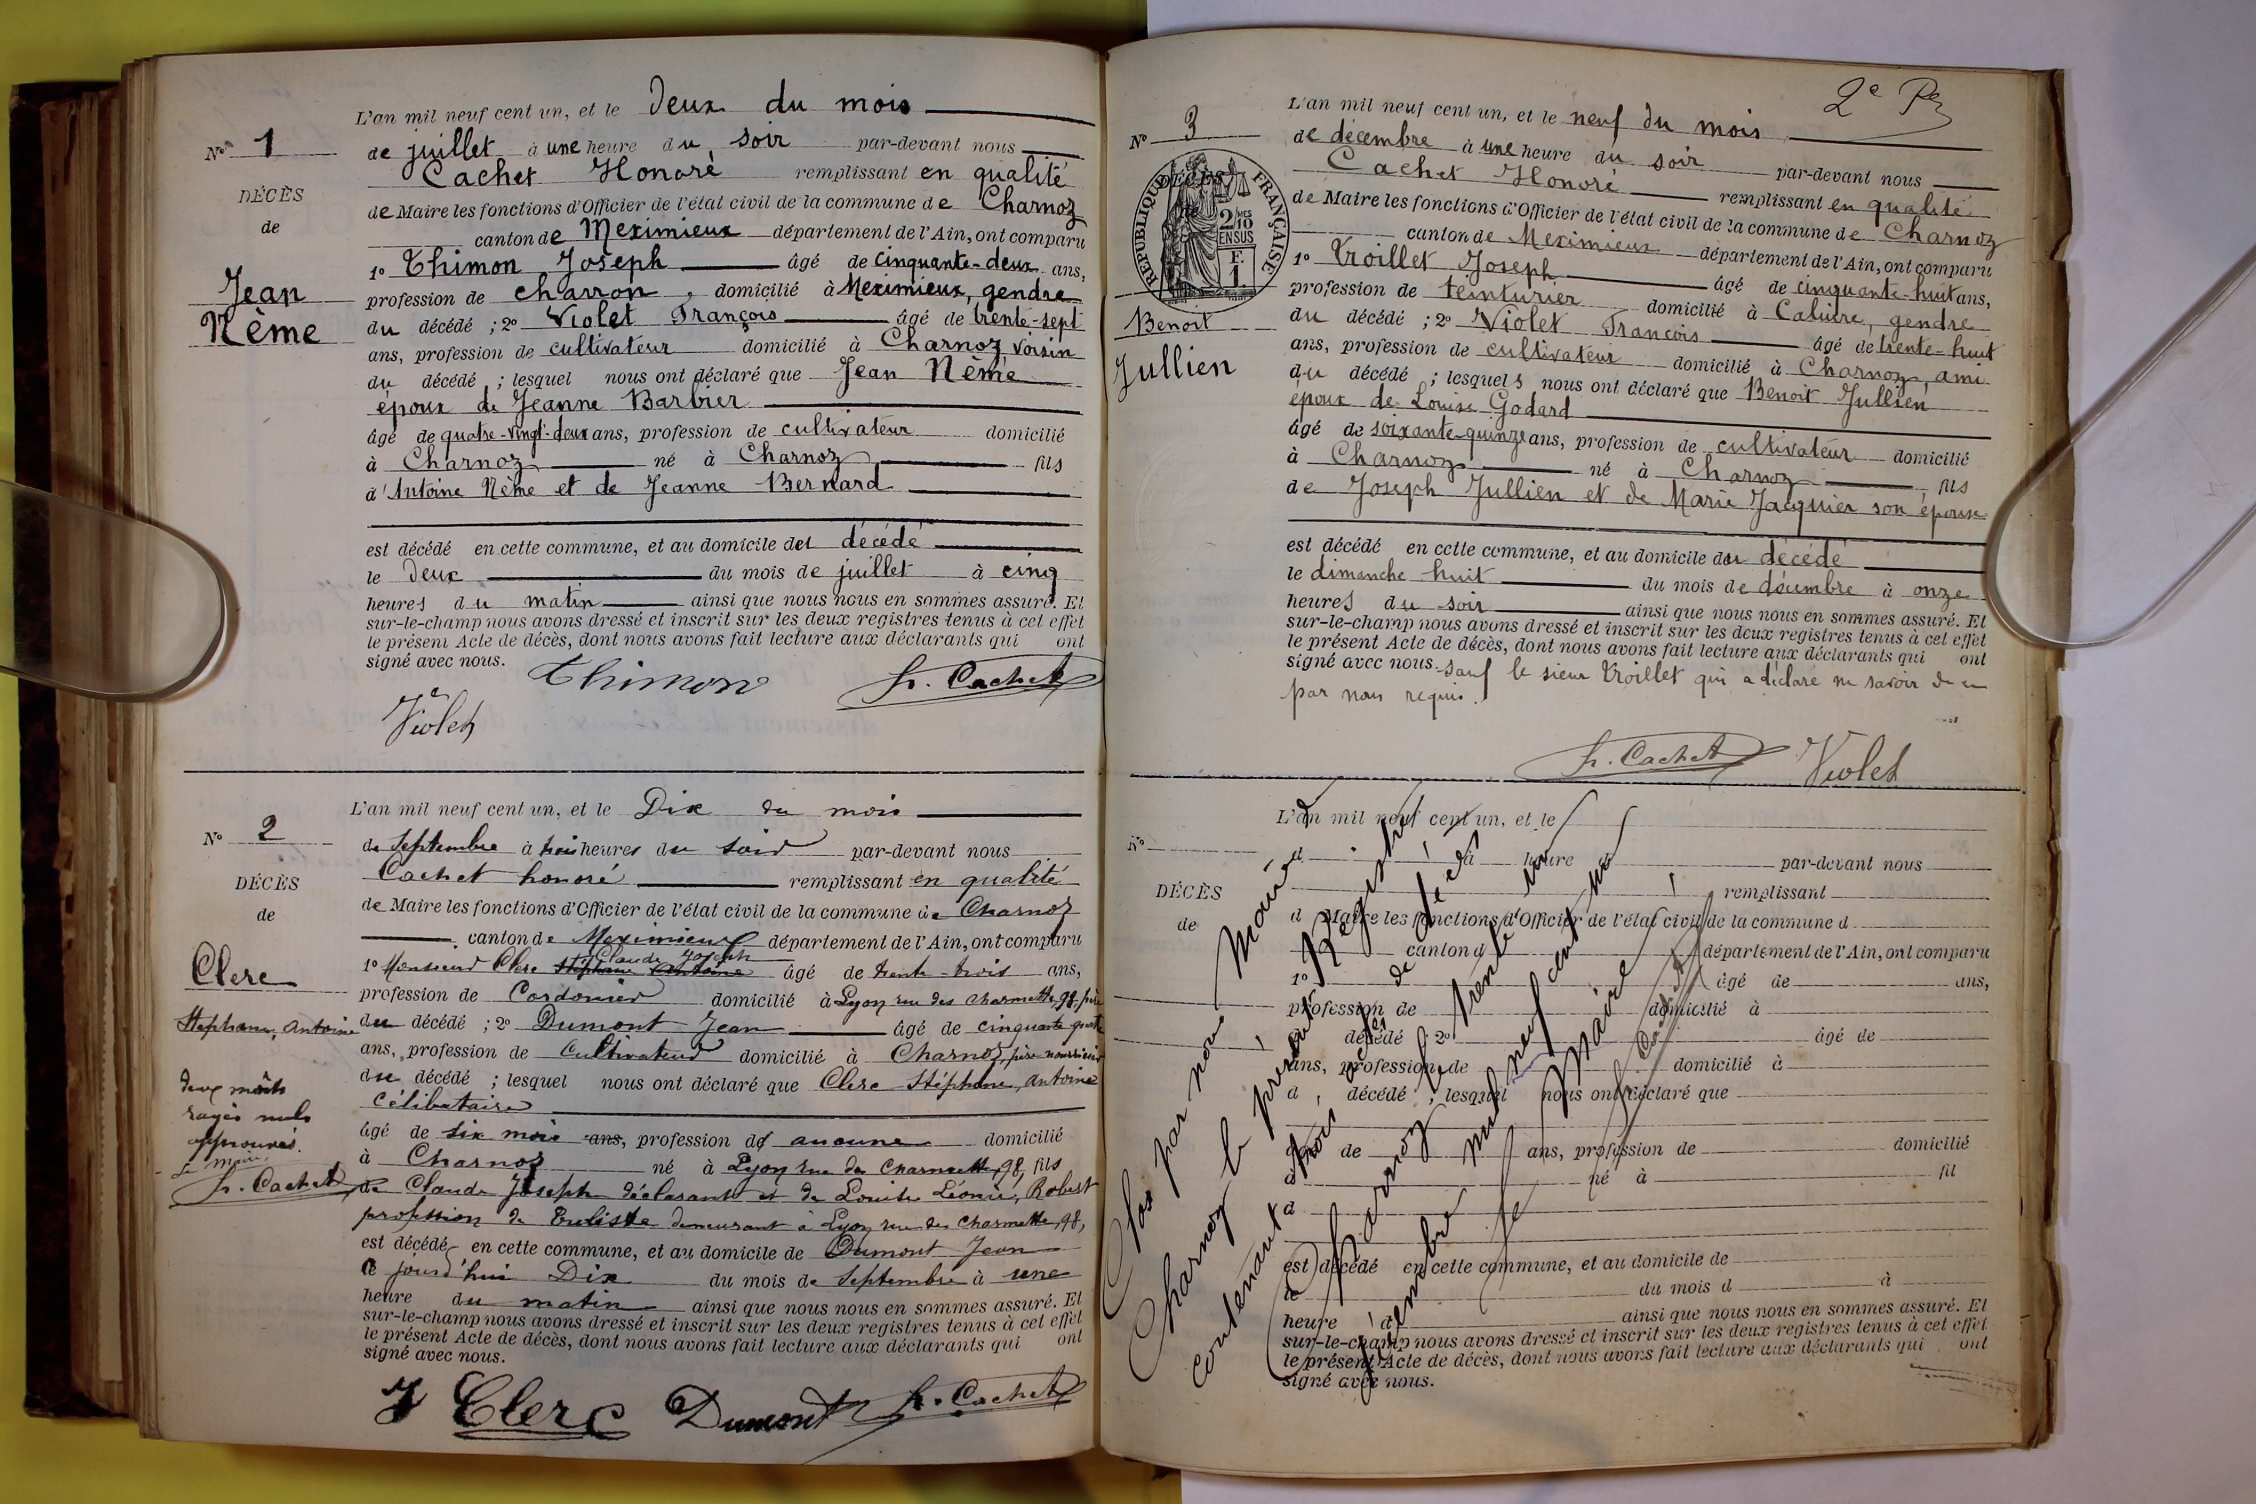 L'an mil neuf cent un, et le Deux du mois
N° 1
de juillet à une heure du soir par-devant nous
Cachet Honoré remplissant en qualité
DÉCÈS
de Maire les fonctions d'Officier de l'état civil de la commune de Charnoz
de
canton de Meximieux département de l'Ain, ont comparu
1° Thimon Joseph âgé de cinquante-deux ans,
Jean
profession de charron, domicilié à Meximieux, gendre
Nême
du décédé ; 2° Violet François âgé de trente-sept
ans, profession de cultivateur domicilié à Charnoz, voisin
du décédé ; lesquel nous ont déclaré que Jean Nême
époux de Jeanne Barbier
âgé de quatre-vingt-deux ans, profession de cultivateur domicilié
à Charnoz né à Charnoz fils
d'Antoine Nême et de Jeanne Bernard
est décédé en cette commune, et au domicile du décédé
le deux du mois de juillet à cinq
heures du matin ainsi que nous nous en sommes assuré. Et
sur-le-champ nous avons dressé et inscrit sur les deux registres tenus à cet effet
le présent Acte de décès, dont nous avons fait lecture aux déclarants qui ont
signé avec nous.
Thimon h. Cachet
Violet
L'an mil neuf cent un, et le Dix du mois
N° 2
de Septembre à trois heures du soir par-devant nous
Cachet honoré remplissant en qualité
DÉCÈS
de Maire les fonctions d'Officier de l'état civil de la commune de Charnoz
de
canton de Meximieux département de l'Ain, ont comparu
Claude Joseph
1° Monsieur Clerc Stéphane Antoine âgé de trente-trois ans,
Clerc
profession de Cordonier domicilié à Lyon rue des charmette, 98, père
Stephane, Antoine
du décédé ; 2° Dumont Jean âgé de cinquante quatre
ans, profession de Cultivateur domicilié à Charnoz, père nourricier
du décédé ; lesquel nous ont déclaré que Clerc Stéphane, Antoine
deux mots
rayés nuls
approuvés.
Le maire,
h. Cachet
Célibataire
âgé de six mois ans, profession de aucune domicilié
à Charnoz né à Lyon rue des Charmette, 98, fils
de Claude Joseph déclarant et de Louise Léonie, Robert
profession de Tulliste demeurant à Lyon rue des charmette, 98,
est décédé en cette commune, et au domicile de Dumont Jean
ce jourd'hui Dix du mois de Septembre à une
heure du matin ainsi que nous nous en sommes assuré. Et
sur-le-champ nous avons dressé et inscrit sur les deux registres tenus à cet effet
le présent Acte de décès, dont nous avons fait lecture aux déclarants qui ont
signé avec nous.
J Clerc Dumont h. Cachet
2e
L'an mil neuf cent un, et le neuf du mois
N° 3
de décembre à une heure du soir par-devant nous
Cachet Honoré remplissant en qualité
DÉCÈS
RÉPUBLIQUE FRANÇAISE
2/10MES
EN SUS
F.
1.
de Maire les fonctions d'Officier de l'état civil de la commune de Charnoz
canton de Meximieux département de l'Ain, ont comparu
1° Troillet Joseph âgé de cinquante-huit ans,
profession de teinturier domicilié à Caluire, gendre
Benoit
Jullien
du décédé ; 2° Violet François âgé de trente-huit
ans, profession de cultivateur domicilié à Charnoz, ami
du décédé ; lesquels nous ont déclaré que Benoit Jullien
époux de Louise Godard
âgé de soixante-quinze ans, profession de cultivateur domicilié
à Charnoz né à Charnoz fils
de Joseph Jullien et de Marie Jacquier son épouse
est décédé en cette commune, et au domicile du décédé
le dimanche huit du mois de décembre à onze
heures du soir ainsi que nous nous en sommes assuré. Et
sur-le-champ nous avons dressé et inscrit sur les deux registres tenus à cet effet
le présent Acte de décès, dont nous avons fait lecture aux déclarants qui ont
signé avec nous. sauf le sieur Troillet qui a déclaré ne savoir de ce
par nous requis.
h. Cachet Violet
L'an mil neuf cent un, et le
N°
d à heure d par-devant nous
remplissant
DÉCÈS
d Maire les fonctions d'Officier de l'état civil de la commune d
de
canton d département de l'Ain, ont comparu
1° âgé de ans,
profession de domicilié à
d décédé ; 2° âgé de
ans, profession de domicilié à
d décédé ; lesquel nous ont déclaré que
âgé de ans, profession de domicilié
à né à fil
d
est décédé en cette commune, et au domicile de
le du mois d à
heure d ainsi que nous nous en sommes assuré. Et
sur-le-champ nous avons dressé et inscrit sur les deux registres tenus à cet effet
le présent Acte de décès, dont nous avons fait lecture aux déclarants qui ont
signé avec nous.
Clos par nous, Maire de
Charnoz le présent Registre
contenant trois actes de décès
Charnoz le trente un
décembre mil neuf cent un
Le Maire
h. Cachet